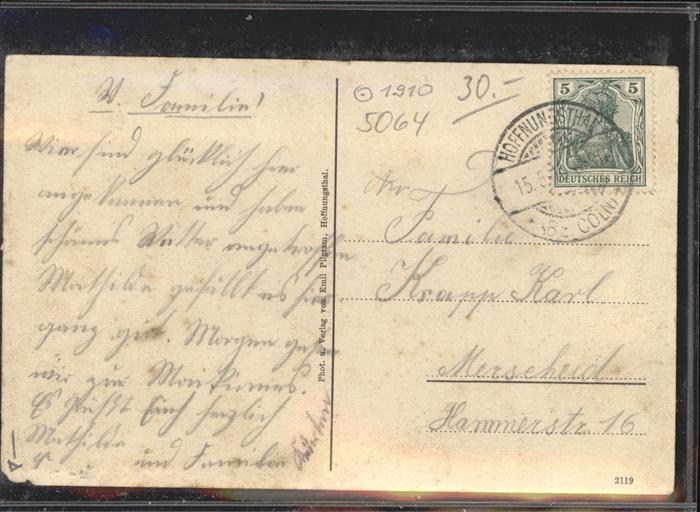 W. Familie!
Wier sind glücklich hier
angekommen und haben
schönes Wetter angetroffen
Mathilde gefällt es hier
ganz gut. Morgen gehen
wir zur Maikirmes.
Es Grüßt Euch herzlich
Mathilde
und Familie
Phot. u. Verlag von Emil Pilgram, Hoffnungsthal.
1910
5064
30.—
5 5
DEUTSCHES REICH
HOFFNUNGSTHAL
15.5
(Bz. CÖLN)
An
Familie
Krapp Karl
Merscheid
Hammerstr. 16
2119